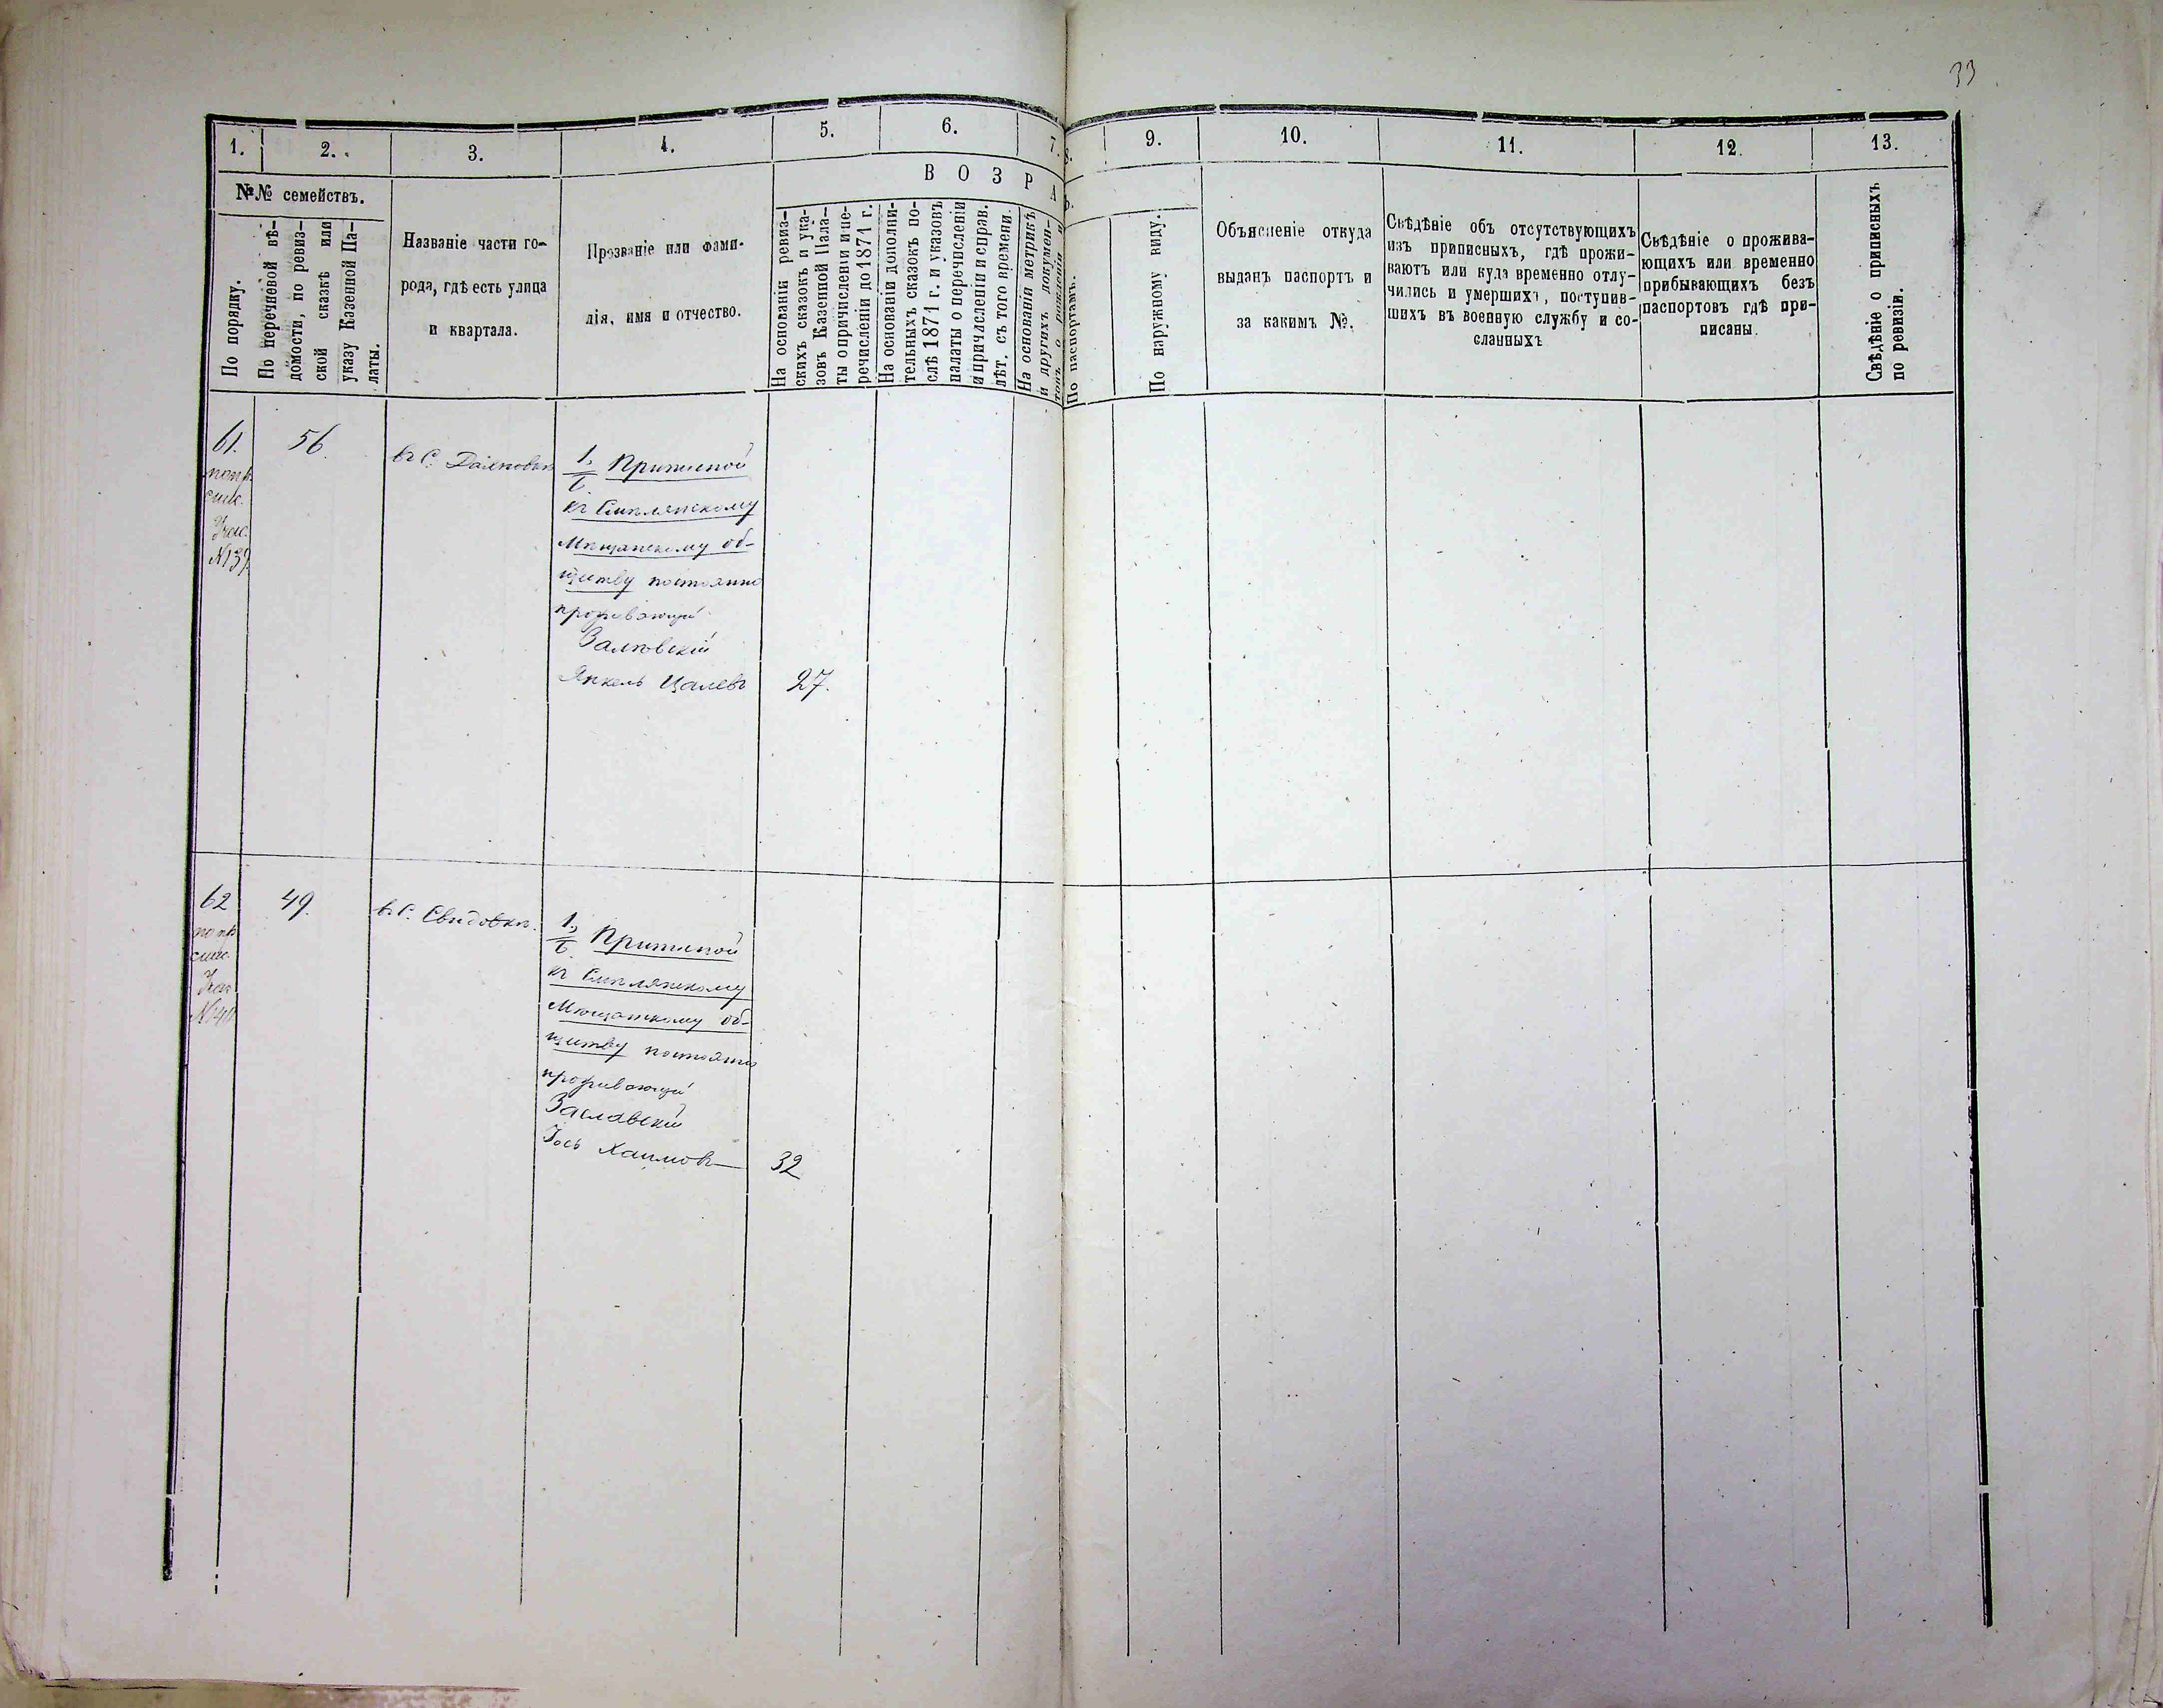 33
1.
2.
3.
4.
5.
6.
7.
8.
9.
10.
11.
12.
13.
№№ семействъ.
В О З Р А
По порядку.
По перечневой вѣ-
домости, по ревиз-
ской сказкѣ или
указу Казенной Па-
латы.
Названіе части го-
рода, гдѣ есть улица
и квартала.
Прозваніе или фами-
лія, имя и отчество.
На основаніи ревиз-
скихъ сказокъ и ука-
зовъ Казенной Пала-
ты о причисленіи и пе-
речисленіи до 1871 г.
На основаніи дополни-
тельныхъ сказокъ по-
слѣ 1871 г. и указовъ
палаты о перечисленіи
и причисленіи и справ.
лѣт. съ того времени.
На основаніи метрикъ
и другихъ докумен-
товъ о рожденіи и
По паспортамъ.
По наружному виду.
Объясненіе откуда
выданъ паспортъ и
за какимъ №.
Свѣдѣніе объ отсутствующихъ
изъ приписныхъ, гдѣ прожи-
ваютъ или куда временно отлу-
чились и умершихъ, поступив-
шихъ въ военную службу и со-
сланныхъ
Свѣдѣніе о прожива-
ющихъ или временно
прибывающихъ безъ
паспортовъ гдѣ при-
писаны.
Свѣдѣніе о приписныхъ
по ревизіи.
61.
56.
№39.
въ С.
1.
къ Смѣлянскому
Мѣщанскому об-
ществу постоянно
проживающій
Янкель Цалевъ
27.
62
49.
въ С. Свидовкѣ.
1.
къ Смѣлянскому
Мѣщанскому об-
ществу постоянно
проживающій
Заславскій
Іось Хаимовъ
32